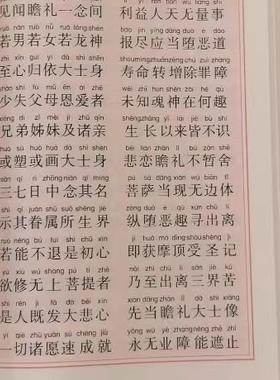 wén zhān lǐ yí niàn jiān lì yì rén tiān wú liàng shì
见闻瞻礼一念间 利益人天无量事
nán ruò nǚ ruò lóng shén bào jìn yīng dāng duò è dào
若男若女若龙神 报尽应当堕恶道
xīn guī yī dà shì shēn shòu mìng zhuǎn zēng chú zuì zhàng
至心归依大士身 寿命转增除罪障
shī fù mǔ ēn ài zhě wèi zhī hún shén zài hé qù
少失父母恩爱者 未知魂神在何趣
dì zǐ mèi jí zhū qīn shēng zhǎng yǐ lái jiē bù shí
兄弟姊妹及诸亲 生长以来皆不识
sù huò huà dà shì shēn bēi liàn zhān lǐ bù zàn shě
或塑或画大士身 悲恋瞻礼不暂舍
qī rì zhōng niàn qí míng pú sà dāng xiàn wú biān tǐ
三七日中念其名 菩萨当现无边体
qí juàn shǔ suǒ shēng jiè zòng duò è qù xún chū lí
示其眷属所生界 纵堕恶趣寻出离
néng bú tuì shì chū xīn jí huò mó dǐng shòu shèng jì
若能不退是初心 即获摩顶受圣记
yù xiū wú shàng pú tí zhě nǎi zhì chū lí sān jiè kǔ
欲修无上菩提者 乃至出离三界苦
shì rén jì fā dà bēi xīn xiān dāng zhān lǐ dà shì xiàng
是人既发大悲心 先当瞻礼大士像
yí qiè zhū yuàn sù chéng jiù yǒng wú yè zhàng néng zhē zhǐ
一切诸愿速成就 永无业障能遮止